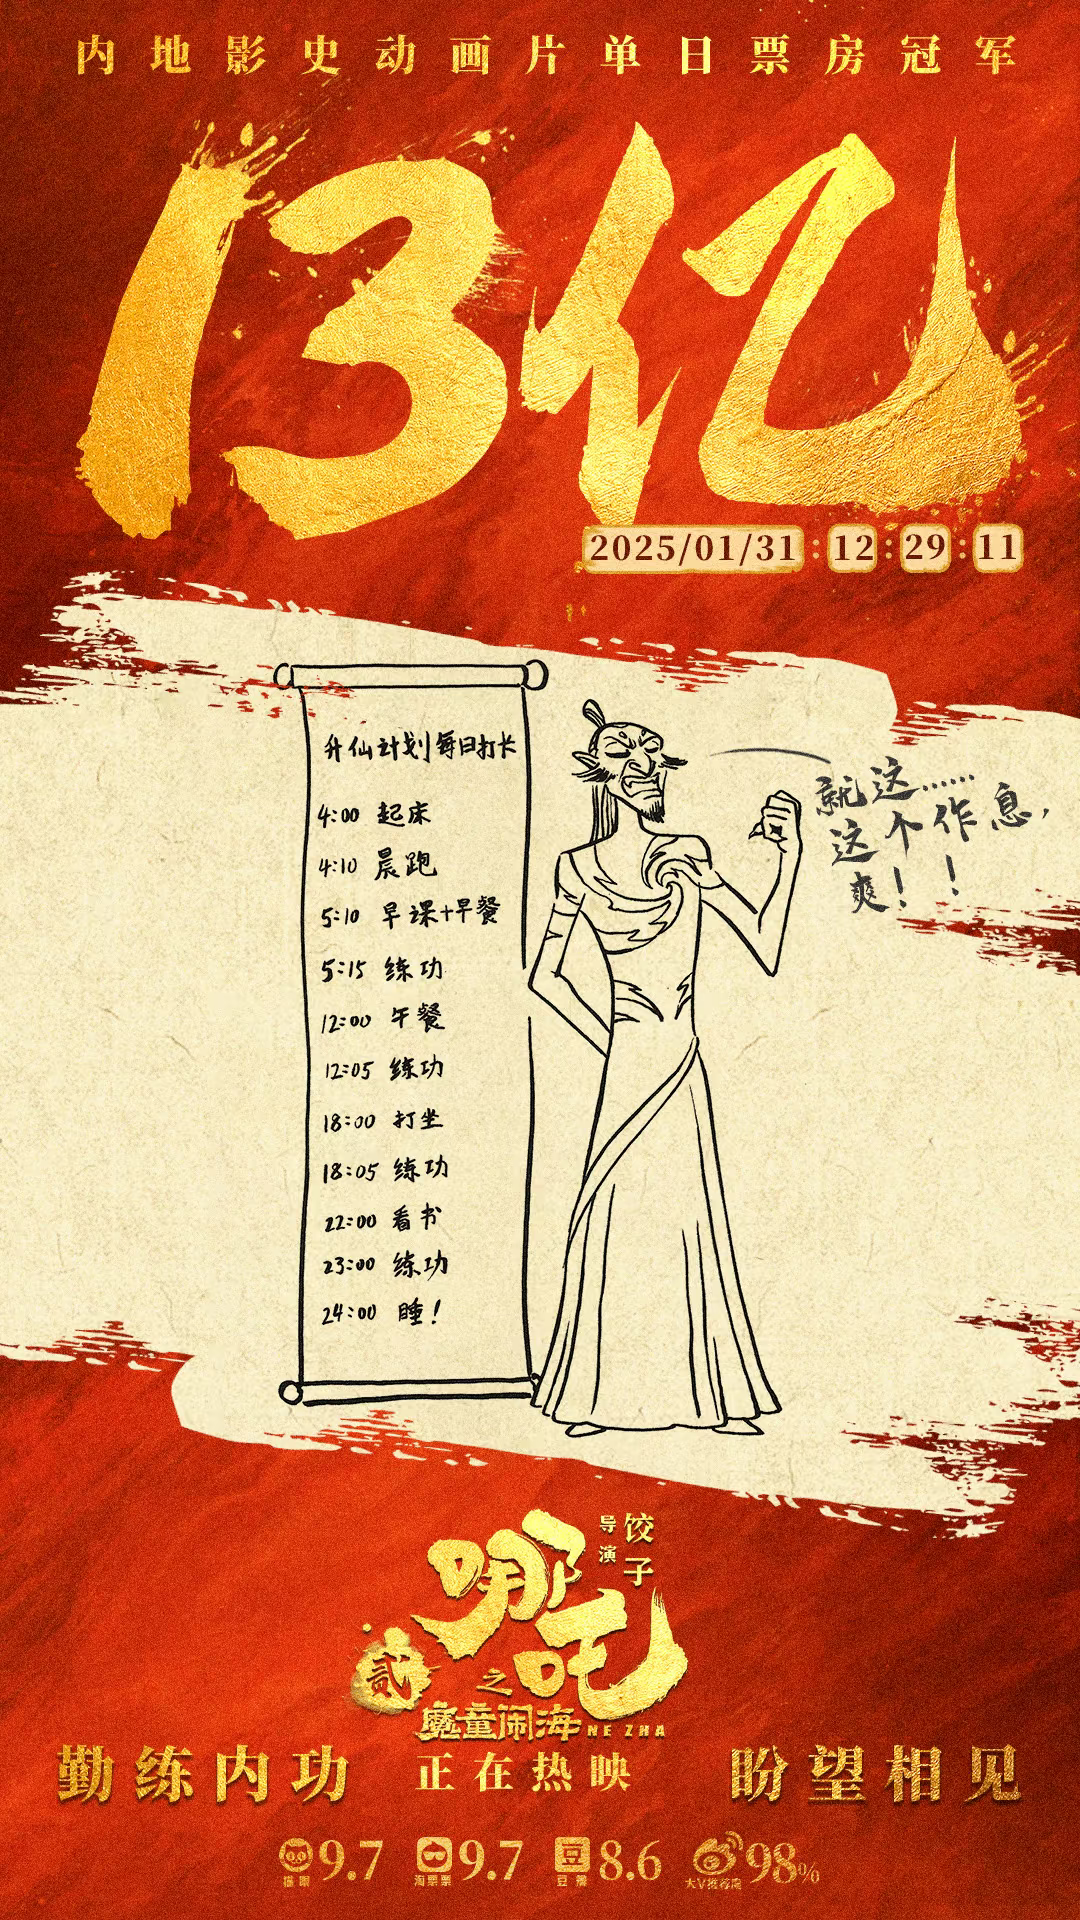 内地影史动画片单日票房冠军
13亿
2025/01/31:12:29:11
升仙计划每日打卡
4:00 起床
4:10 晨跑
5:10 早课+早餐
5:15 练功
12:00 午餐
12:05 练功
18:00 打坐
18:05 练功
22:00 看书
23:00 练功
24:00 睡!
就这……
这个作息,
爽!!
导演 饺子
哪吒
贰 之
魔童闹海 NE ZHA
勤练内功 正在热映 盼望相见
猫眼 9.7 淘票票 9.7 豆瓣 8.6 大V推荐度 98%